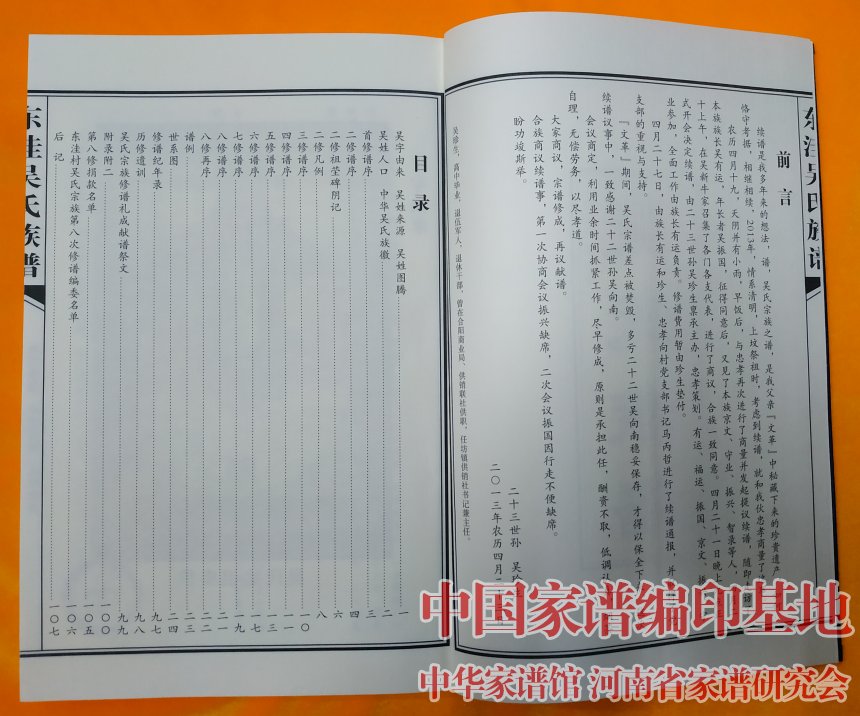 东洼吴氏族谱
前言
续谱是我多年来的想法，谱，吴氏宗族之谱，是我父亲『文革』中秘藏下来的珍贵遗产，
恪守考据，相继相续，2013年，情系清明，上坟祭祖时，考虑到续谱，就和我伙忠孝商量了
农历四月十九，天阴并有小雨，早饭后，与忠孝再次进行了商量并发起提议续谱，随即
本族族长吴有运，年长者吴振国，征得同意后，又见了本族京文、守业、振兴、智录等人，
十上午，在吴新牛家召集了各门各支代表，进行了商议，合族一致同意。四月二十一日晚上
式开会决定续谱，由二十三世孙吴珍生禀承主办，忠孝策划。有运、福运、振国、京文、振
业参加，全面工作由族长有运负责。修谱费用暂由珍生垫付。
四月二十七日，由族长有运和珍生、忠孝向村党支部书记马丙哲进行了续谱通报，并
支部的重视与支持。
『文革』期间，吴氏宗谱差点被焚毁，多亏二十二世吴向南稳妥保存，才得以保全下
续谱议事中，一致感谢二十二世孙吴向南。
会议商定，利用业余时间抓紧工作，尽早修成，原则是承担此任，酬资不取，低调
自理，无偿劳务，以尽孝道。
大家商议，宗谱修成，再议献谱。
合族商议续谱事，第一次协商会议振兴缺席，二次会议振国因行走不便缺席。
盼功竣斯举。
二十三世孙 吴珍
二〇一三年农历四月二
吴珍生，高中毕业，退伍军人，退休干部，曾在合阳商业局、供销联社供职，任坊镇供销社书记兼主任。
目录
吴字由来 吴姓来源 吴姓图腾 一
吴姓人口 中华吴氏族徽 二
首修谱序 三
二修谱序 四
二修祖茔碑阴记 六
二修凡例 八
四修谱序
五修谱序
六修谱序
七修谱序
八修谱序
八修再序
谱例
世系图 二四
修谱纪年录 九七
历修遗训 九八
吴氏宗族修谱礼成献谱祭文 九九
附录附二 一〇〇
第八修捐款名单 一〇五
东洼村吴氏宗族第八次修谱编委名单 一〇六
后记 一〇七
东洼吴氏族谱
中国家谱编印基地
中华家谱馆 河南省家谱研究会